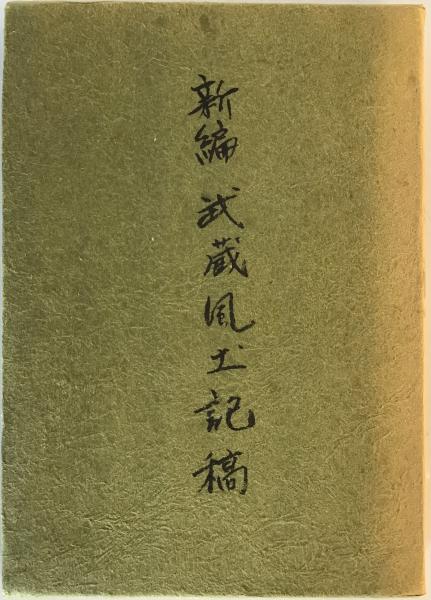 新編武蔵風土記稿